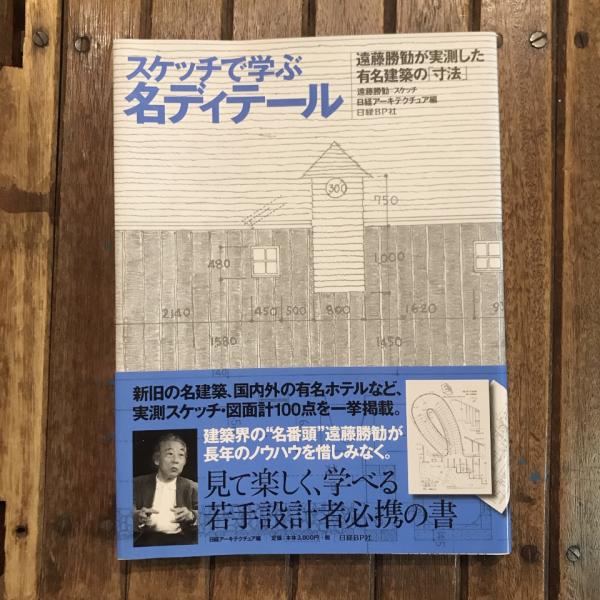 スケッチで学ぶ
名ディテール
遠藤勝勧が実測した
有名建築の「寸法」
遠藤勝勧=スケッチ
日経アーキテクチュア編
日経BP社
300
750
480
1,000
2140
450
500
800
1620
1580
1450
140
新旧の名建築、国内外の有名ホテルなど、
実測スケッチ・図面計100点を一挙掲載。
建築界の“名番頭”遠藤勝勧が
長年のノウハウを惜しみなく。
見て楽しく、学べる
若手設計者必携の書
日経アーキテクチュア編 定価:本体3,800円+税 日経BP社